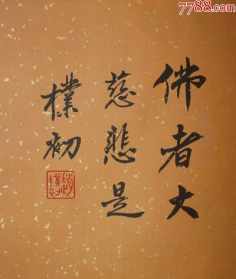 7788.com
佛者大
慈悲是
樸初